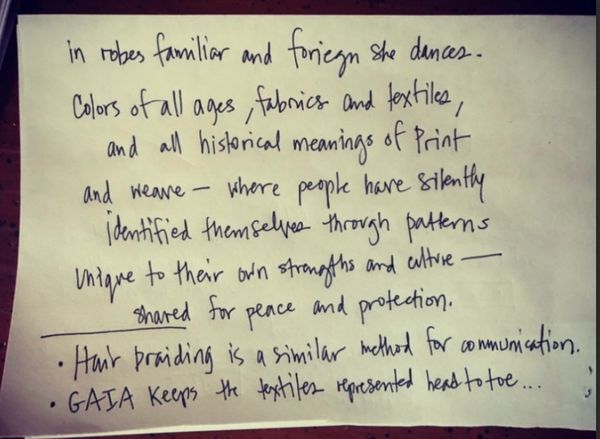 in robes familiar and foriegn she dances.
Colors of all ages, fabrics and textiles,
and all historical meanings of Print
and weave — where people have silently
identified themselves through patterns
unique to their own strengths and culture —
shared for peace and protection.
• Hair braiding is a similar method for communication.
• GAIA Keeps the textiles represented head to toe...